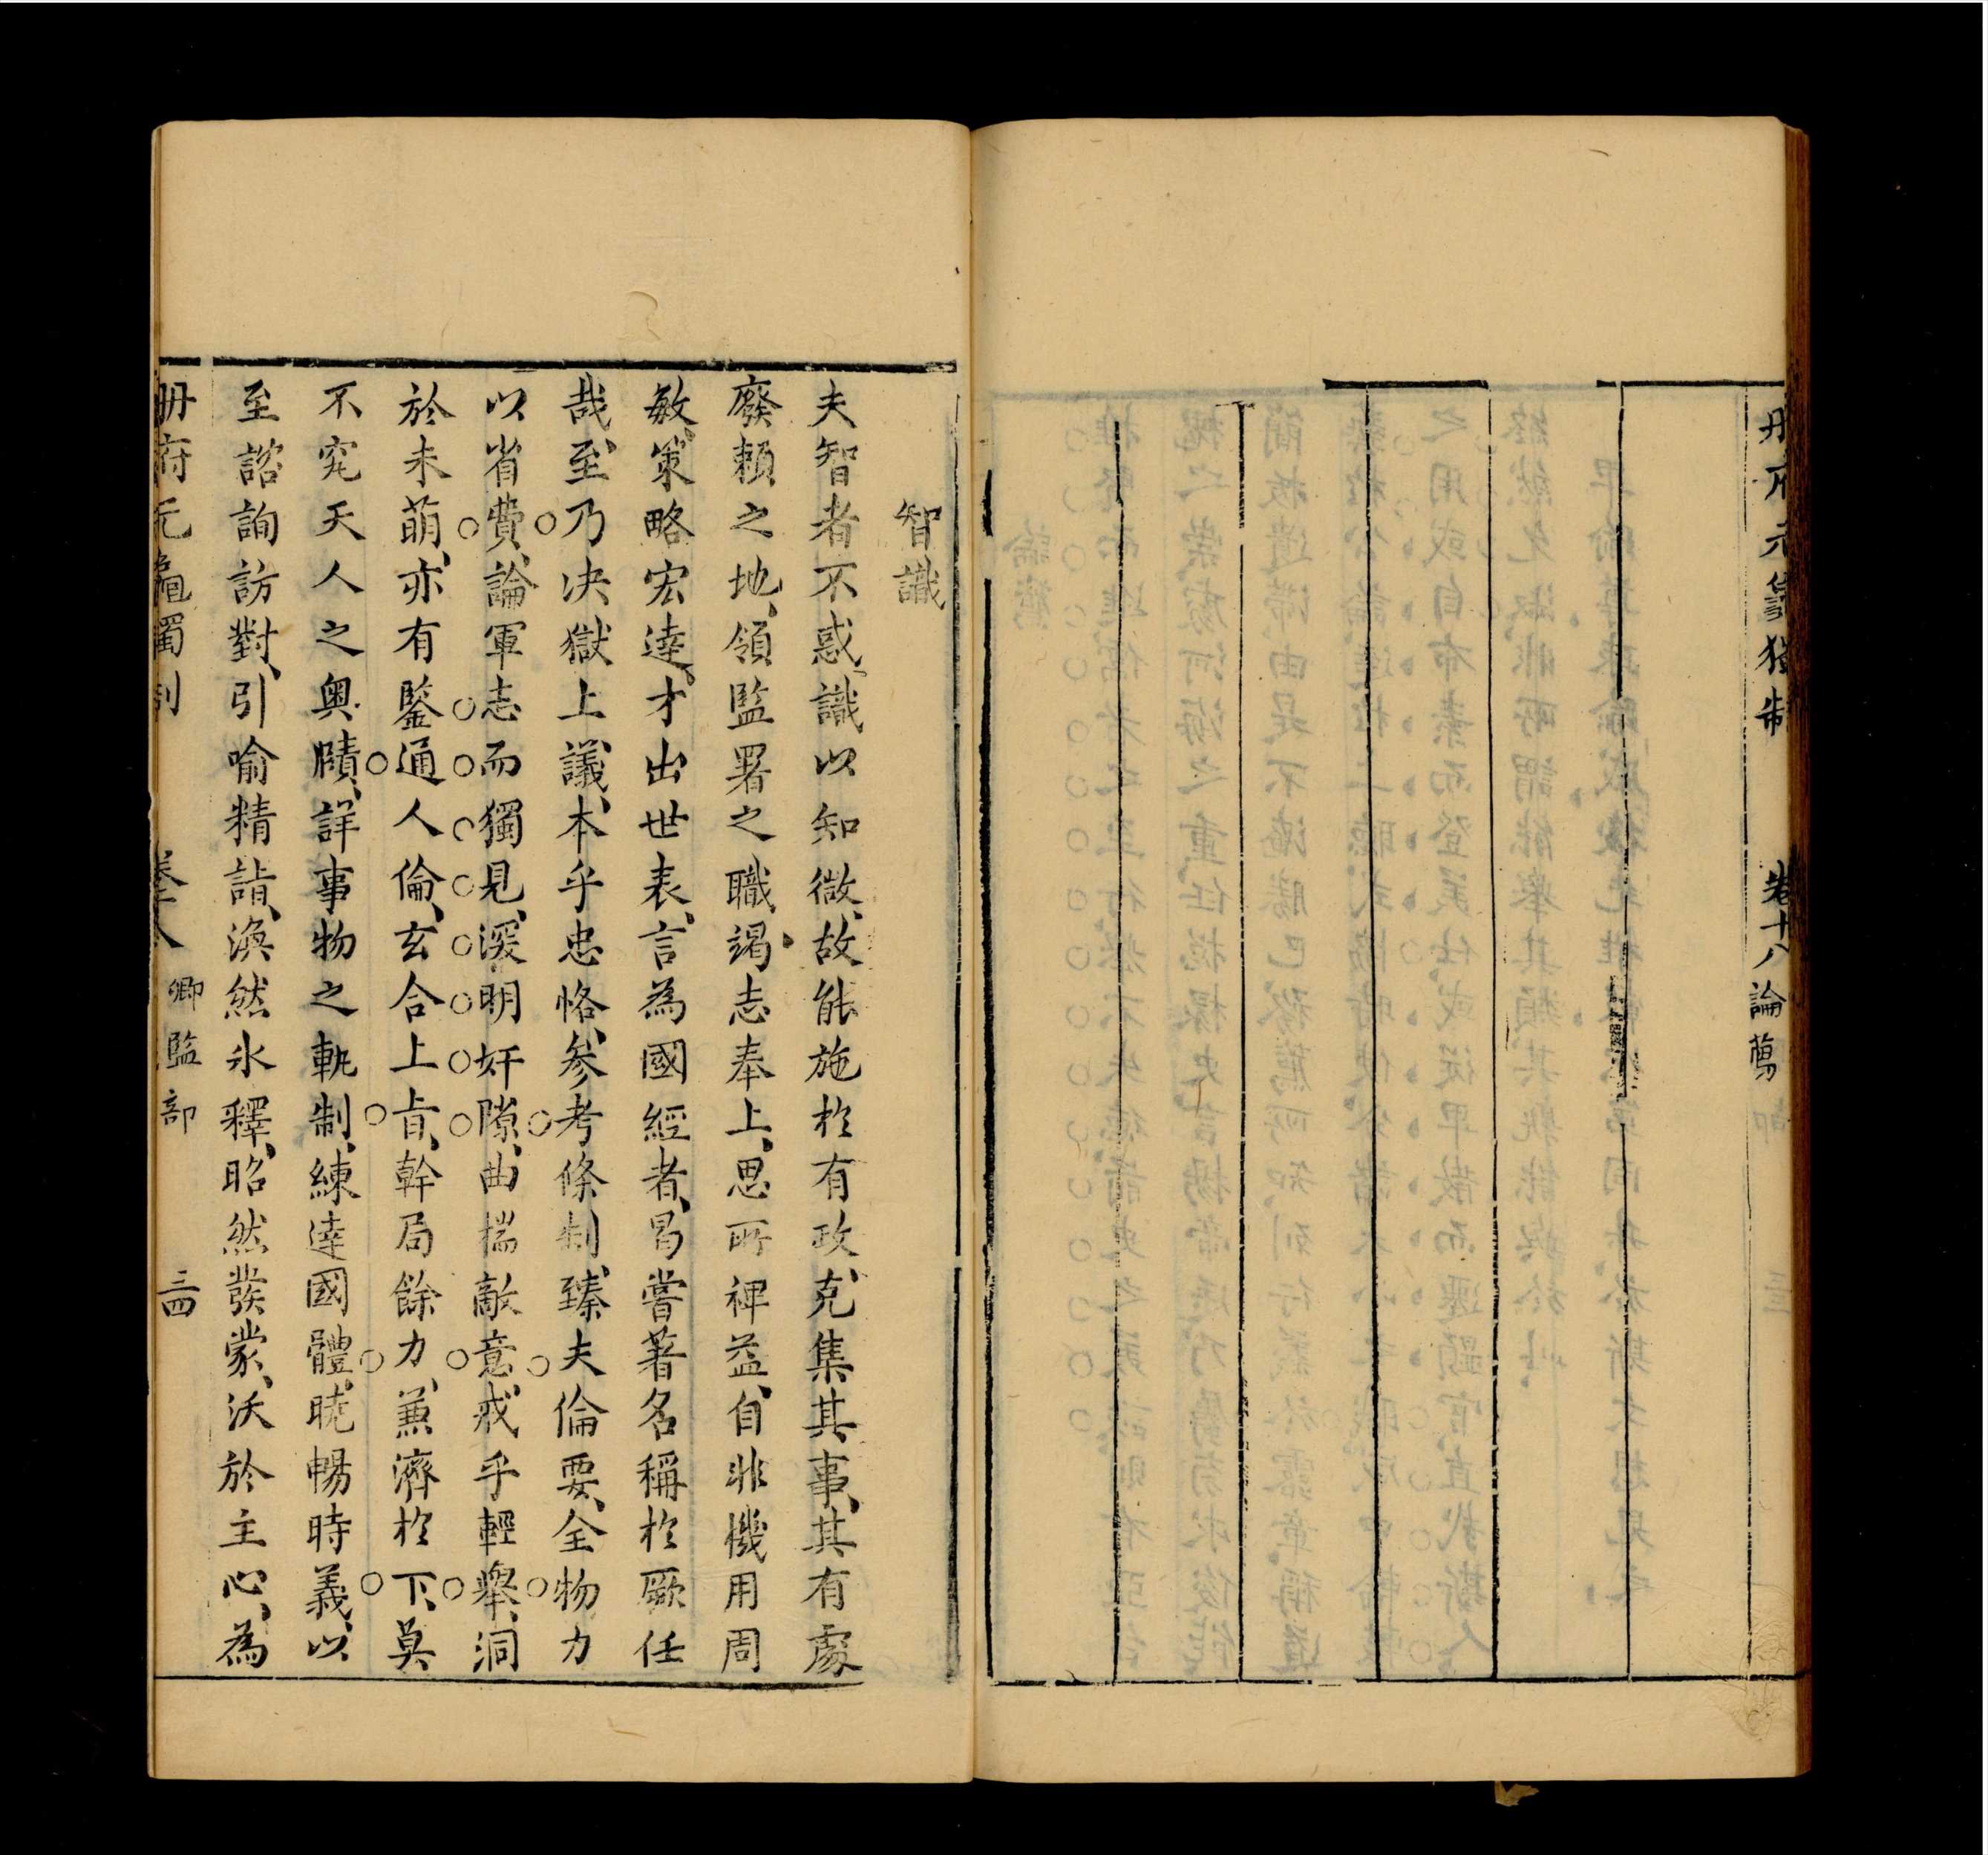 卷十八 論薦
智識
夫智者不惑識以知微故能施於有政克集其事其有處
廢賴之地領監署之職竭志奉上思所裨益自非機用周
敏策略宏達才出世表言為國經者曷嘗著名稱於厥任
哉至乃決獄上議本乎忠恪參考條制臻夫倫要全物力
以省費論軍志而獨見深明奸隙曲揣敵意戒乎輕舉洞
於未萌亦有鑒通人倫玄合上旨幹局餘力兼濟於下莫
不究天人之奧賾詳事物之軌制練達國體曉暢時義以
至諮詢訪對引喻精詣渙然氷釋昭然發蒙沃於主心為
冊府元龜獨制 卷十八 卿監部 三四